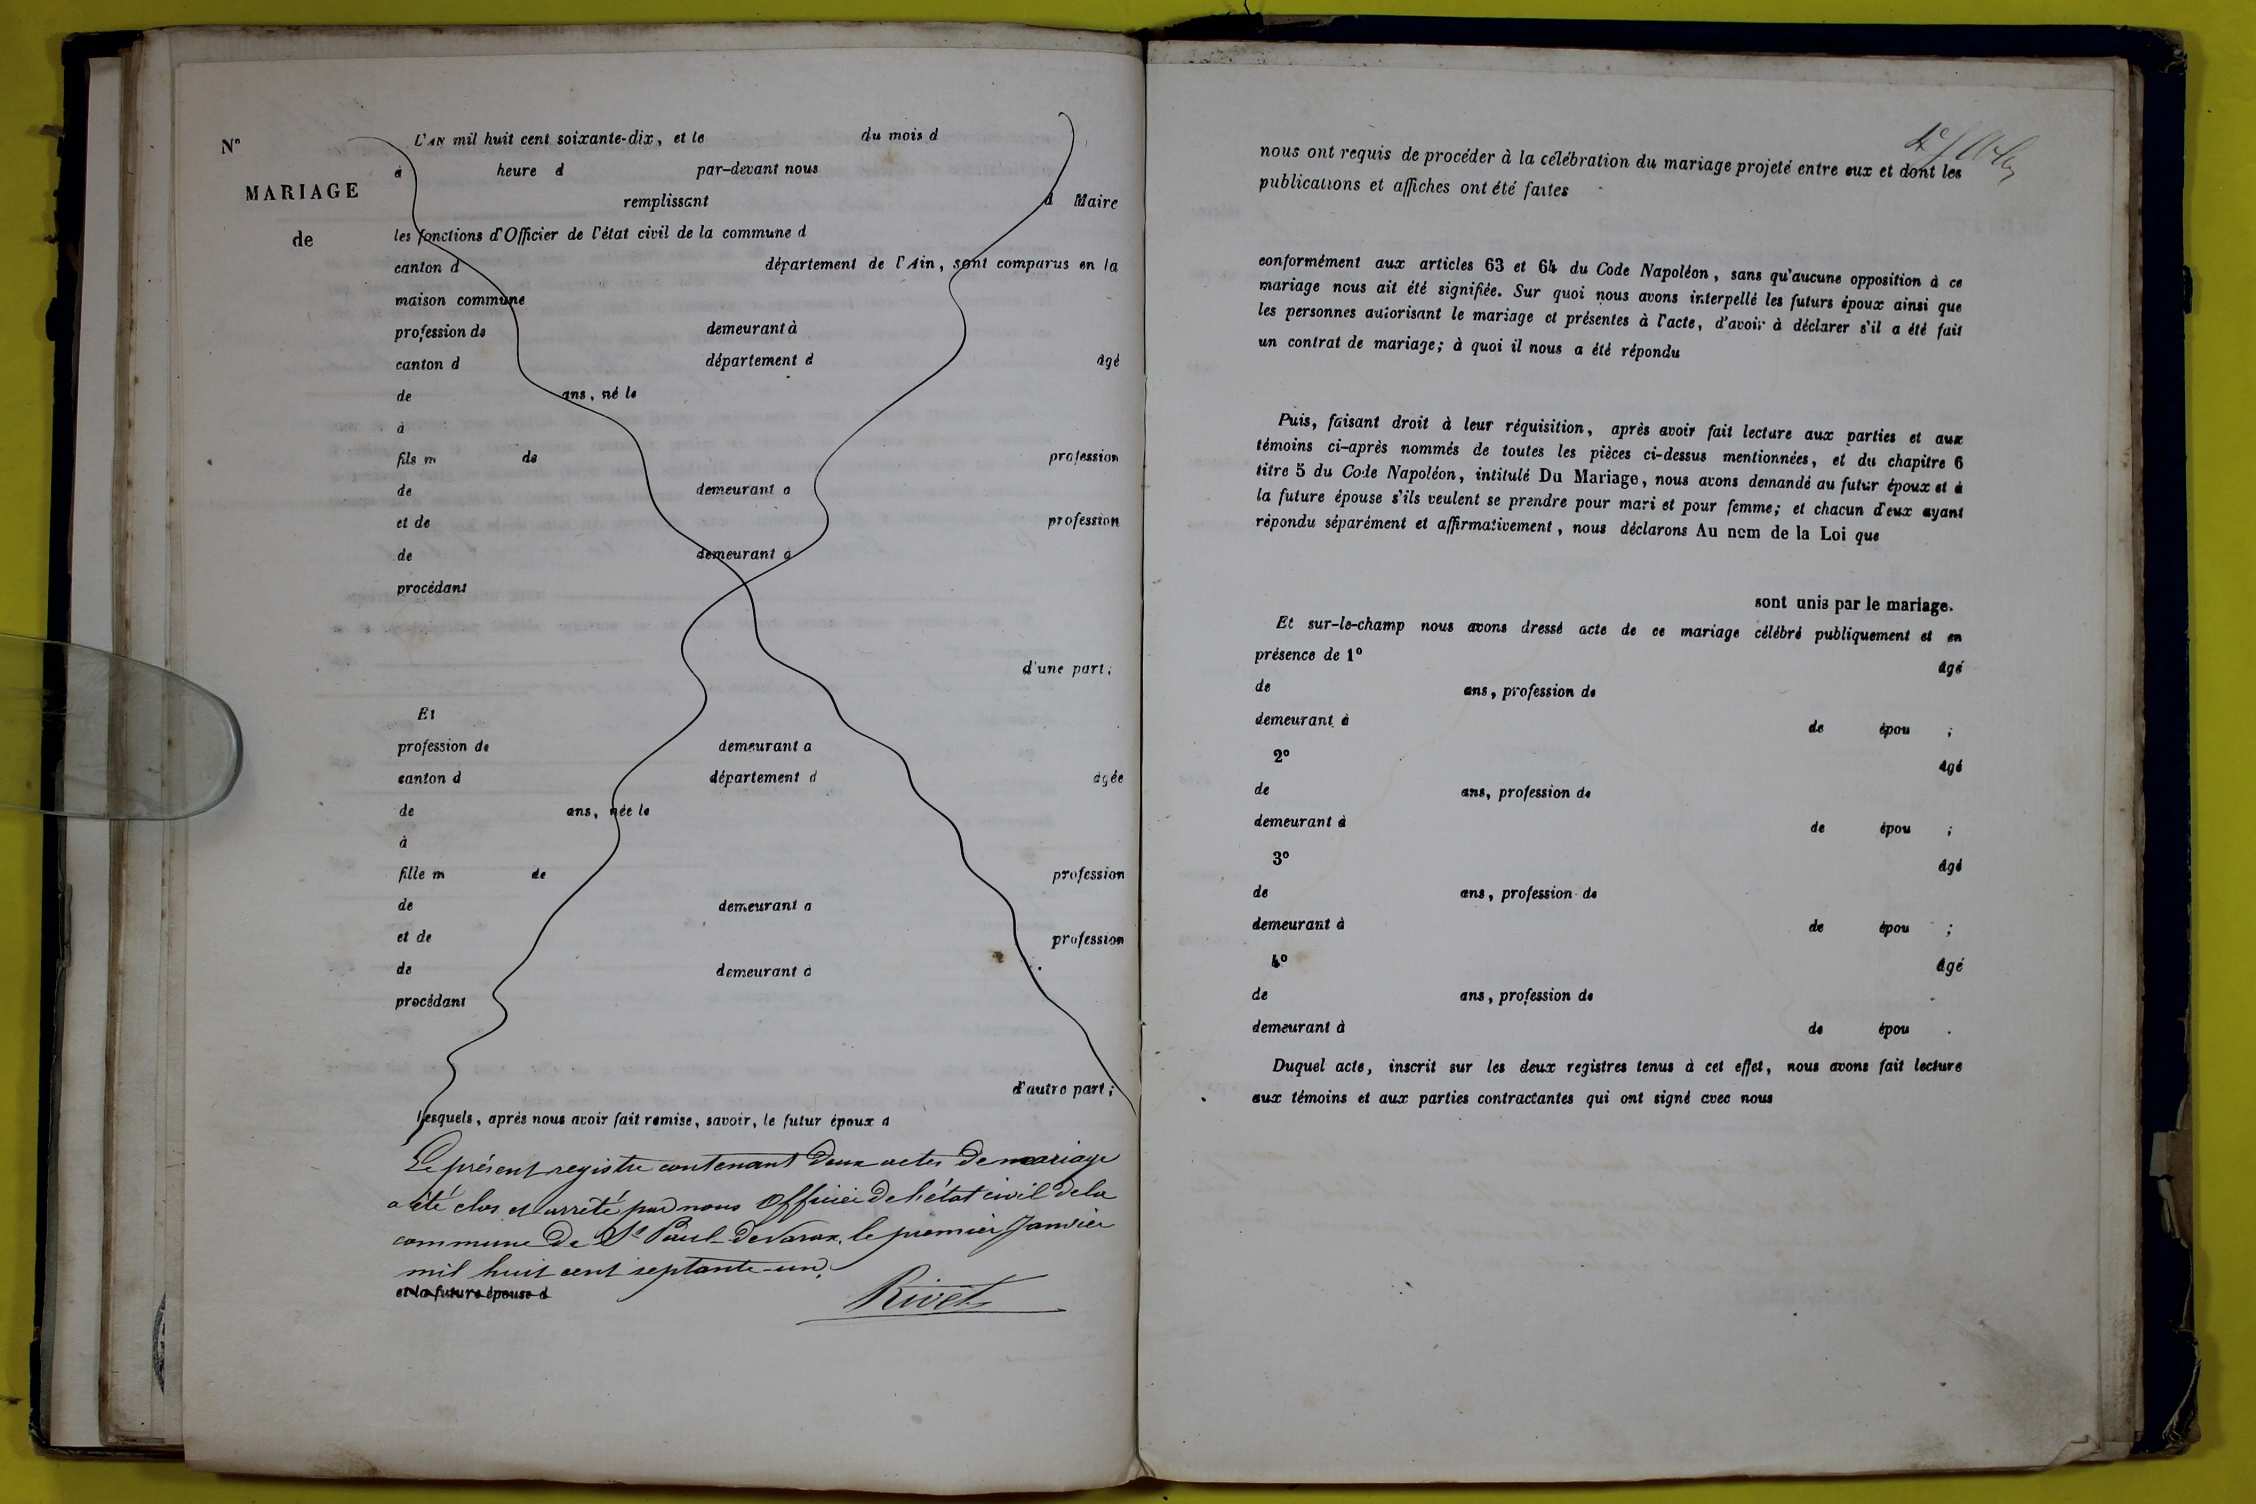 Nº
MARIAGE
de
L'AN mil huit cent soixante-dix, et le du mois d
à heure d par-devant nous
remplissant d Maire
les fonctions d'Officier de l'état civil de la commune d
canton d département de l'Ain, sont comparus en la
maison commune
profession de demeurant à
canton d département d âgé
de ans, né le
à
fils m de profession
de demeurant à
et de profession
de demeurant à
procédant
d'une part;
Et
profession de demeurant à
canton d département d âgée
de ans, née le
à
fille m de profession
de demeurant à
et de profession
de demeurant à
procédant
d'autre part;
lesquels, après nous avoir fait remise, savoir, le futur époux d
Le présent registre contenant deux actes de mariage
a été clos et arrêté par nous Officier de l'état civil de la
commune de St Paul-de Varax, le premier Janvier
mil huit cent septante-un.
et la future épouse d
Rivet
nous ont requis de procéder à la célébration du mariage projeté entre eux et dont les
publications et affiches ont été faites
conformément aux articles 63 et 64 du Code Napoléon, sans qu'aucune opposition à ce
mariage nous ait été signifiée. Sur quoi nous avons interpellé les futurs époux ainsi que
les personnes autorisant le mariage et présentes à l'acte, d'avoir à déclarer s'il a été fait
un contrat de mariage; à quoi il nous a été répondu
Puis, faisant droit à leur réquisition, après avoir fait lecture aux parties et aux
témoins ci-après nommés de toutes les pièces ci-dessus mentionnées, et du chapitre 6
titre 5 du Code Napoléon, intitulé Du Mariage, nous avons demandé au futur époux et à
la future épouse s'ils veulent se prendre pour mari et pour femme; et chacun d'eux ayant
répondu séparément et affirmativement, nous déclarons Au nom de la Loi que
sont unis par le mariage.
Et sur-le-champ nous avons dressé acte de ce mariage célébré publiquement et en
présence de 1º âgé
de ans, profession de
demeurant à de épou ;
2º âgé
de ans, profession de
demeurant à de épou ;
3º âgé
de ans, profession de
demeurant à de épou ;
4º âgé
de ans, profession de
demeurant à de épou .
Duquel acte, inscrit sur les deux registres tenus à cet effet, nous avons fait lecture
aux témoins et aux parties contractantes qui ont signé avec nous